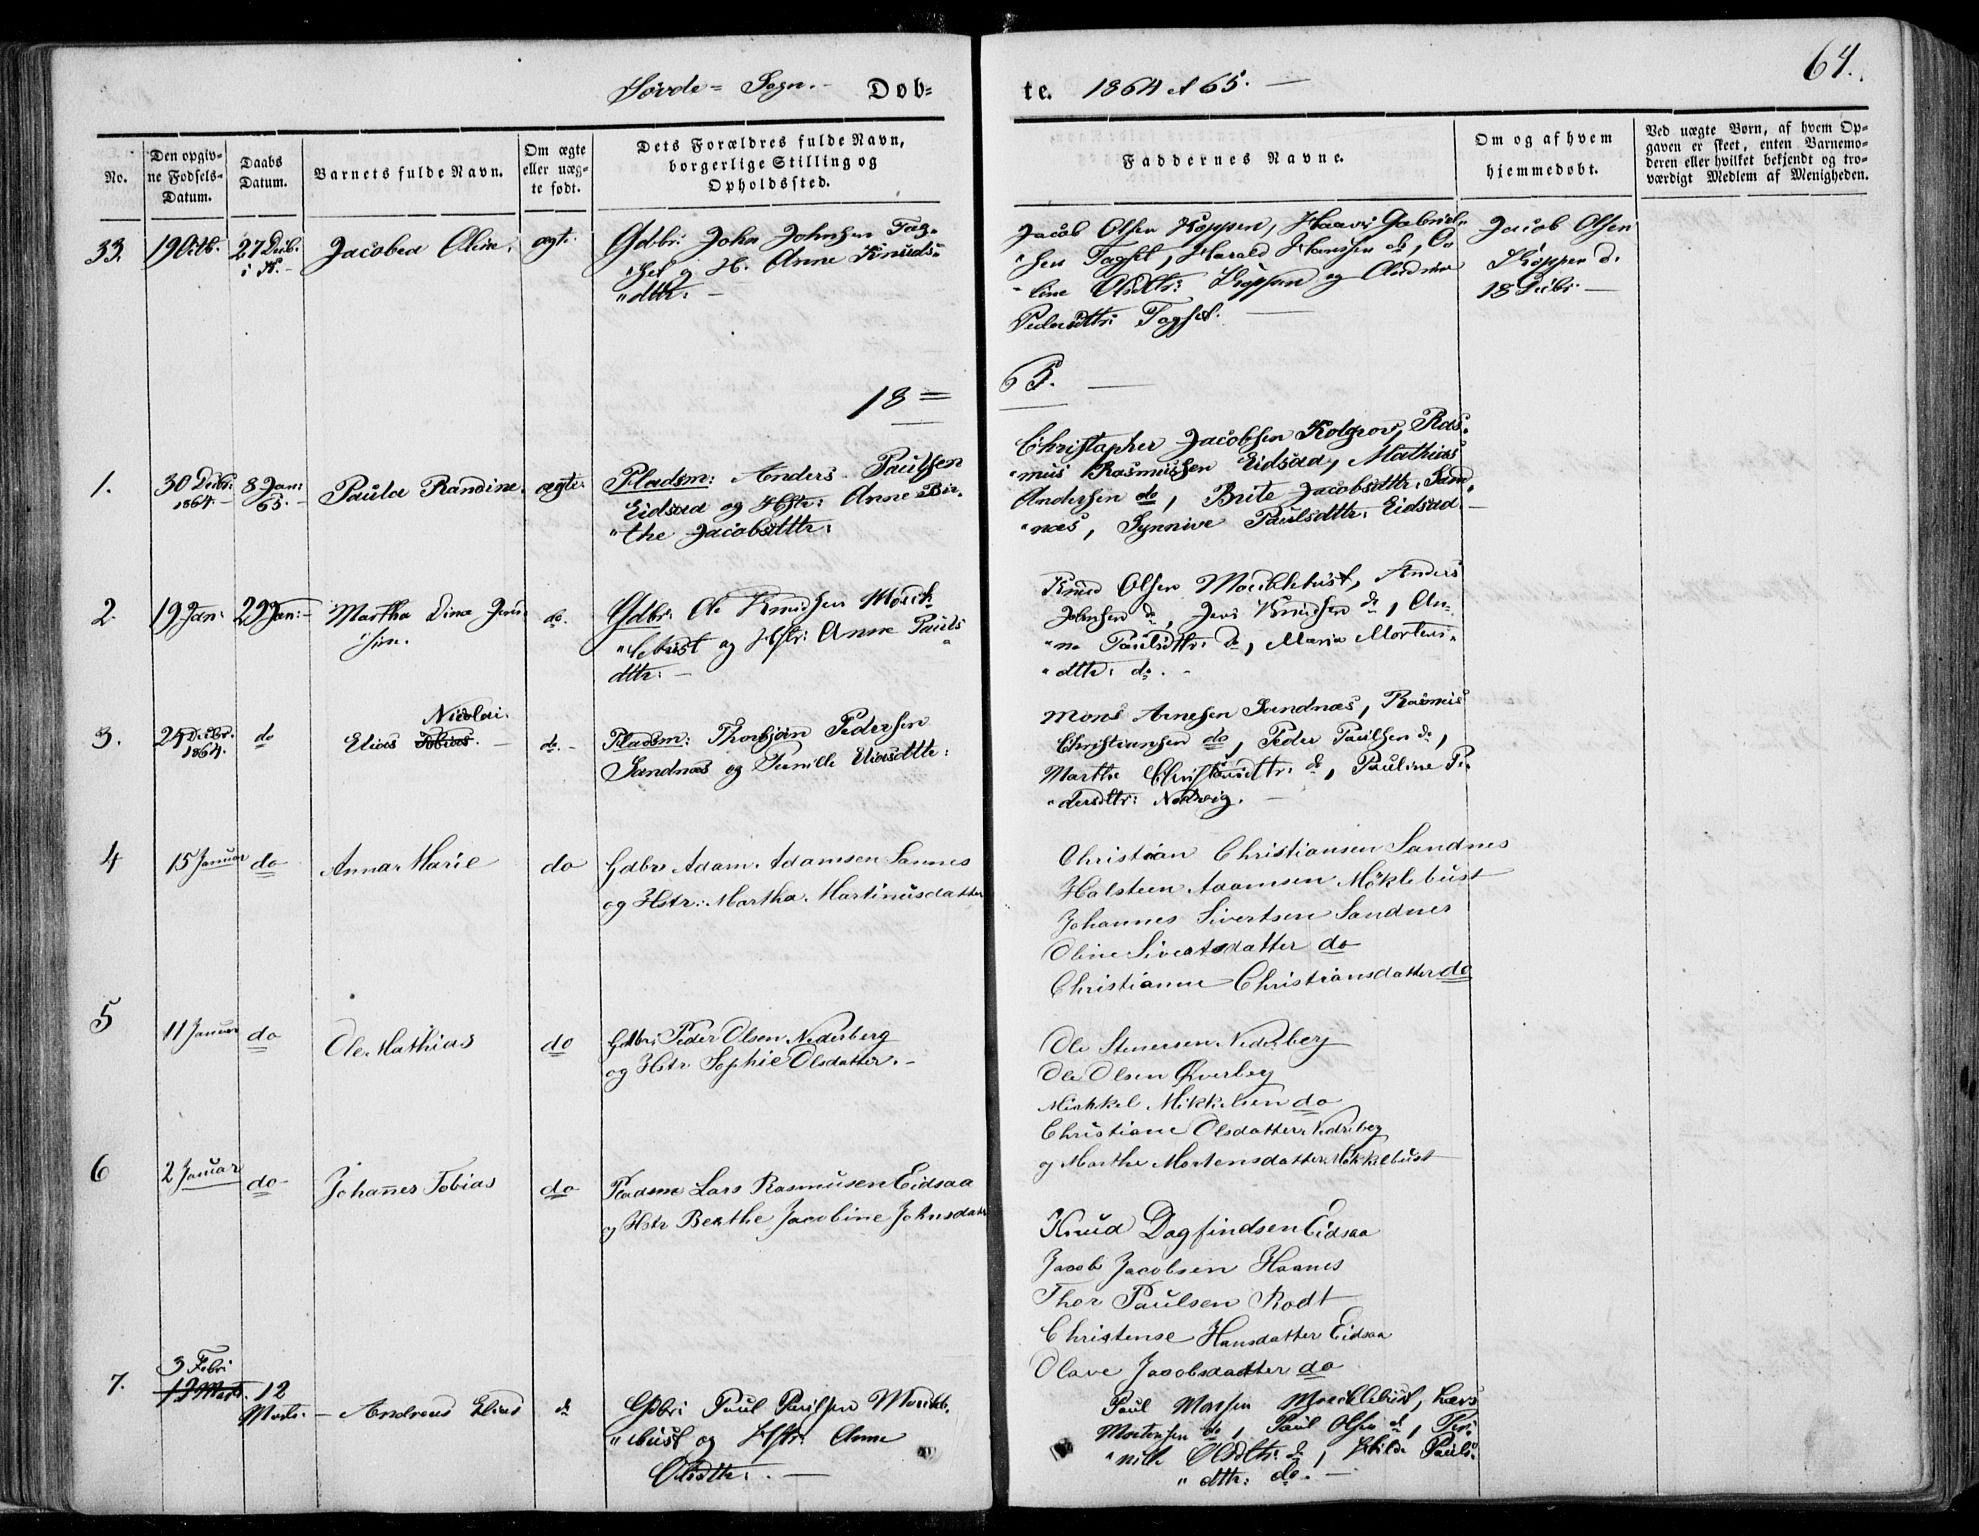 64.
Søvde= Sogn.- Døb=
te. 1864 et 65. —
No.
Den opgiv=
ne Fødsels=
Datum.
Daabs
Datum.
Barnets fulde Navn.
Om ægte
eller uæg=
te født.
Dets Forældres fulde Navn,
borgerlige Stilling og
Opholdssted.
Faddernes Navne.
Om og af hvem
hjemmedøbt.
Ved uægte Børn, af hvem Op=
gaven er skeet, enten Barnemo=
deren eller hvilket bekjendt og tro=
værdigt Medlem af Menigheden.
33.
19 Octb.
27 Decb.
i K.-
Jacobea Oline.
ægte.
Gdbr: John Johnsen
og H. Anne Knuds=
"dttr: —
Jacob Olsen Koppen, Gabriel=
"sen, Harald Hansen do, O=
"line Olsdtr: Koppen og
Pedersdttr:
Jacob Olsen
Koppen d.
18 Decbr. —
18 =
65. —
1.
30 Decbr.
1864. -
8 Jan:
65. -
Paula Randine.
ægte.
Pladsm: Anders Paulsen
Eidsaa og Hstr: Anne Bir=
"the Jacobsdttr:
Christopher Jacobsen Kolgrov, Ras=
"mus Rasmussen Eidsaa, Mathias
Andersen do, Brite Jacobsdttr. Sand=
"næs, Synnive Paulsdttr: Eidsaa. -
2.
19 Jan:
29 Jan: -
Martha Dina Jen=
sine.
do.
Gdbr: Ole Knudsen Moeck=
"lebust og Hstr: Anne Pauls=
dttr: —
Knud Olsen Moecklebust, Anders
Johnsen do, Jens Knudsen do, An=
"ne Paulsdttr: do, Maria Mortens=
"dttr: do. -
3.
29 Decbr.
1864.
do
Nicolai.
Elias Tobias. -
do. -
Pladsm: Thorbjørn Pedersen
Sandnæs og Pernille Eliasdttr:
Mons Arnesen Sandnæs, Rasmus
Christiansen do, Peder Paulsen do,
Marthe Christiansdttr: do, Pauline Pe=
"dersdttr: Nedvig. -
4
15 Januar
do
Anna Marie
do
Gdbr Adam Adamsen Sannes
og Hstr: Martha Martinusdatter
Christian Christiansen Sandnes
Holsteen Aaamsen Møklebust
Johannes Sivertsen Sandnes
Oline Sivertsdatter do
Christianne Christiansdatter do
5
11 Januar
do
Ole Mathias
do
Gdbr: Peder Olsen Nederberg
og Hstr Sophie Olsdatter. -
Ole Stenersen Nederberg
Ole Olsen Øverberg
Michkel Mikkelsen do
Christiane Olsdatter Nedreberg
og Marthe Mortensdatter Møkkelbust
6
2 Januar
do
Johannes Tobias
do
Pladsm Lars Rasmusen Eidsaa
og Hstr Berthe Jacobine Johnsdatr
Knud Dagfindsen Eidsaa
Jacob Jacobsen Haanes
Thor Paulsen Rodt
Christense Hansdatter Eidsaa
Olave Jacobsdatter do
7.
3 Febr
12 Marts.
12
Marts. -
Andreas Elias
do
Gdbr: Paul Paulsen Moeckl.
"ebust og Hstr: Anne
Olsdttr: . —
Paul Monsen Moecklebust, Lars
Mortensen do, Paul Olsen do, Per=
"nille Olsdttr: do, Pauls=
"dttr: do. —